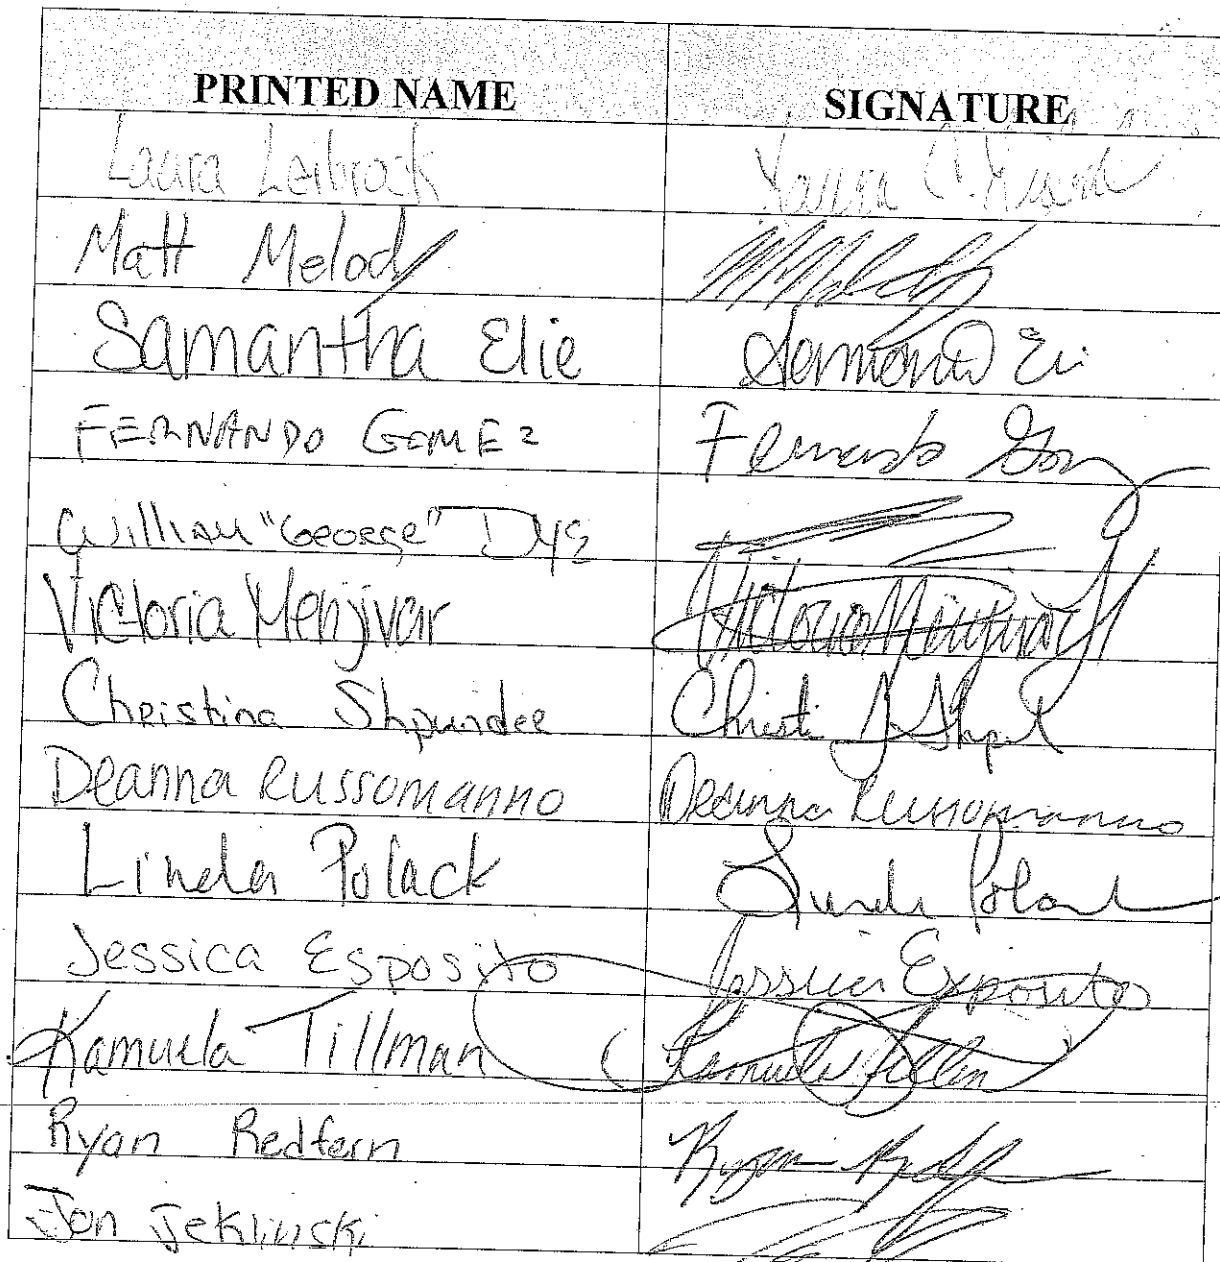 PRINTED NAME SIGNATURE
Laura Leibrock Laura
Matt Melody MMelody
Samantha Elie
FERNANDO GOMEZ Fernando
William "George" Dys
Victoria Menjivar Victoria Menjivar
Christina Shpunder
Deanna Russomanno Deanna Russomanno
Linda Polack Linda Polack
Jessica Esposito Jessica Esposito
Kamuela Tillman Kamuela Tillman
Ryan Redfern Ryan
Jon Jeklinski